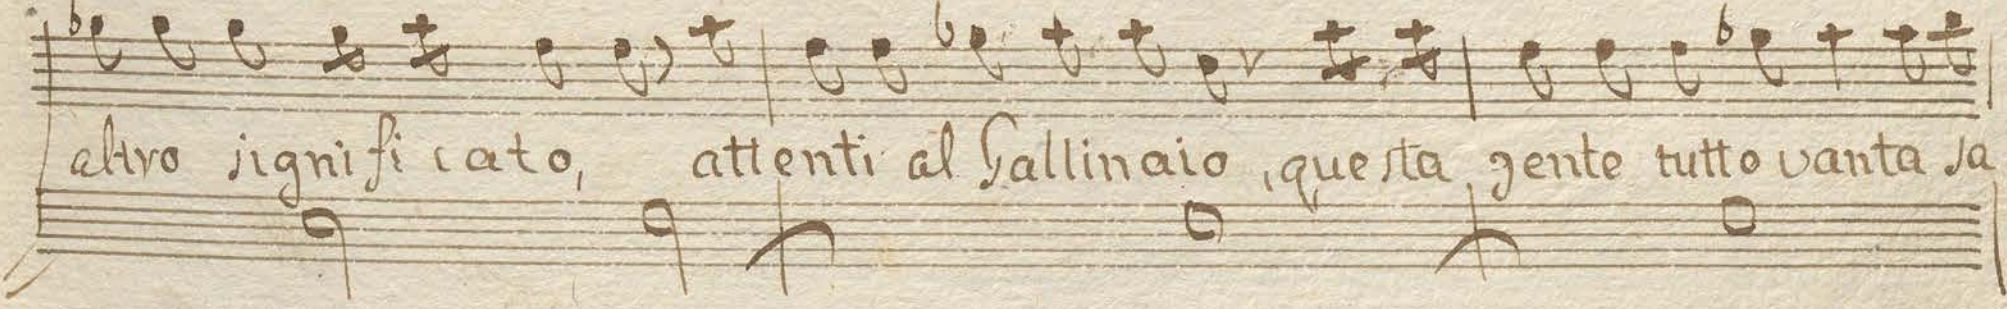 altro significato, attenti al Gallinaio, questa gente tutto vanta sa